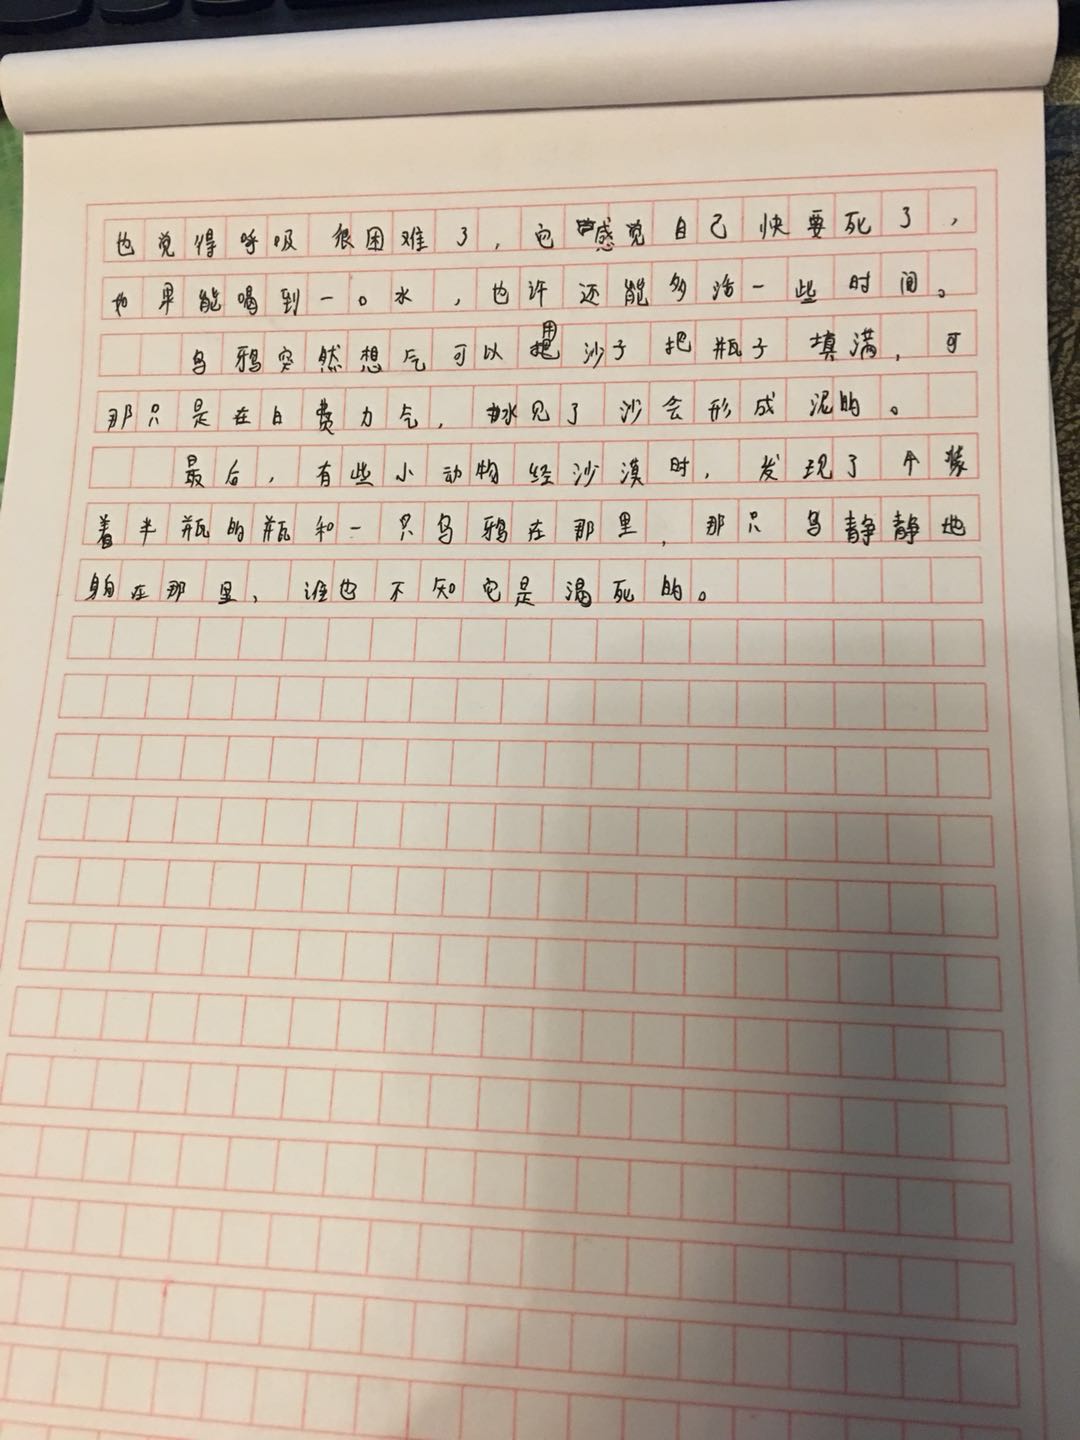 也觉得呼吸很困难了，它感觉自己快要死了，
如果能喝到一口水，也许还能多活一些时间。
乌鸦突然想气可以用沙子把瓶子填满，可
那只是在白费力气，水见了沙会形成泥的。
最后，有些小动物经沙漠时，发现了个装
着半瓶的瓶和一只乌鸦在那里，那只乌静静地
躺在那里，谁也不知它是渴死的。